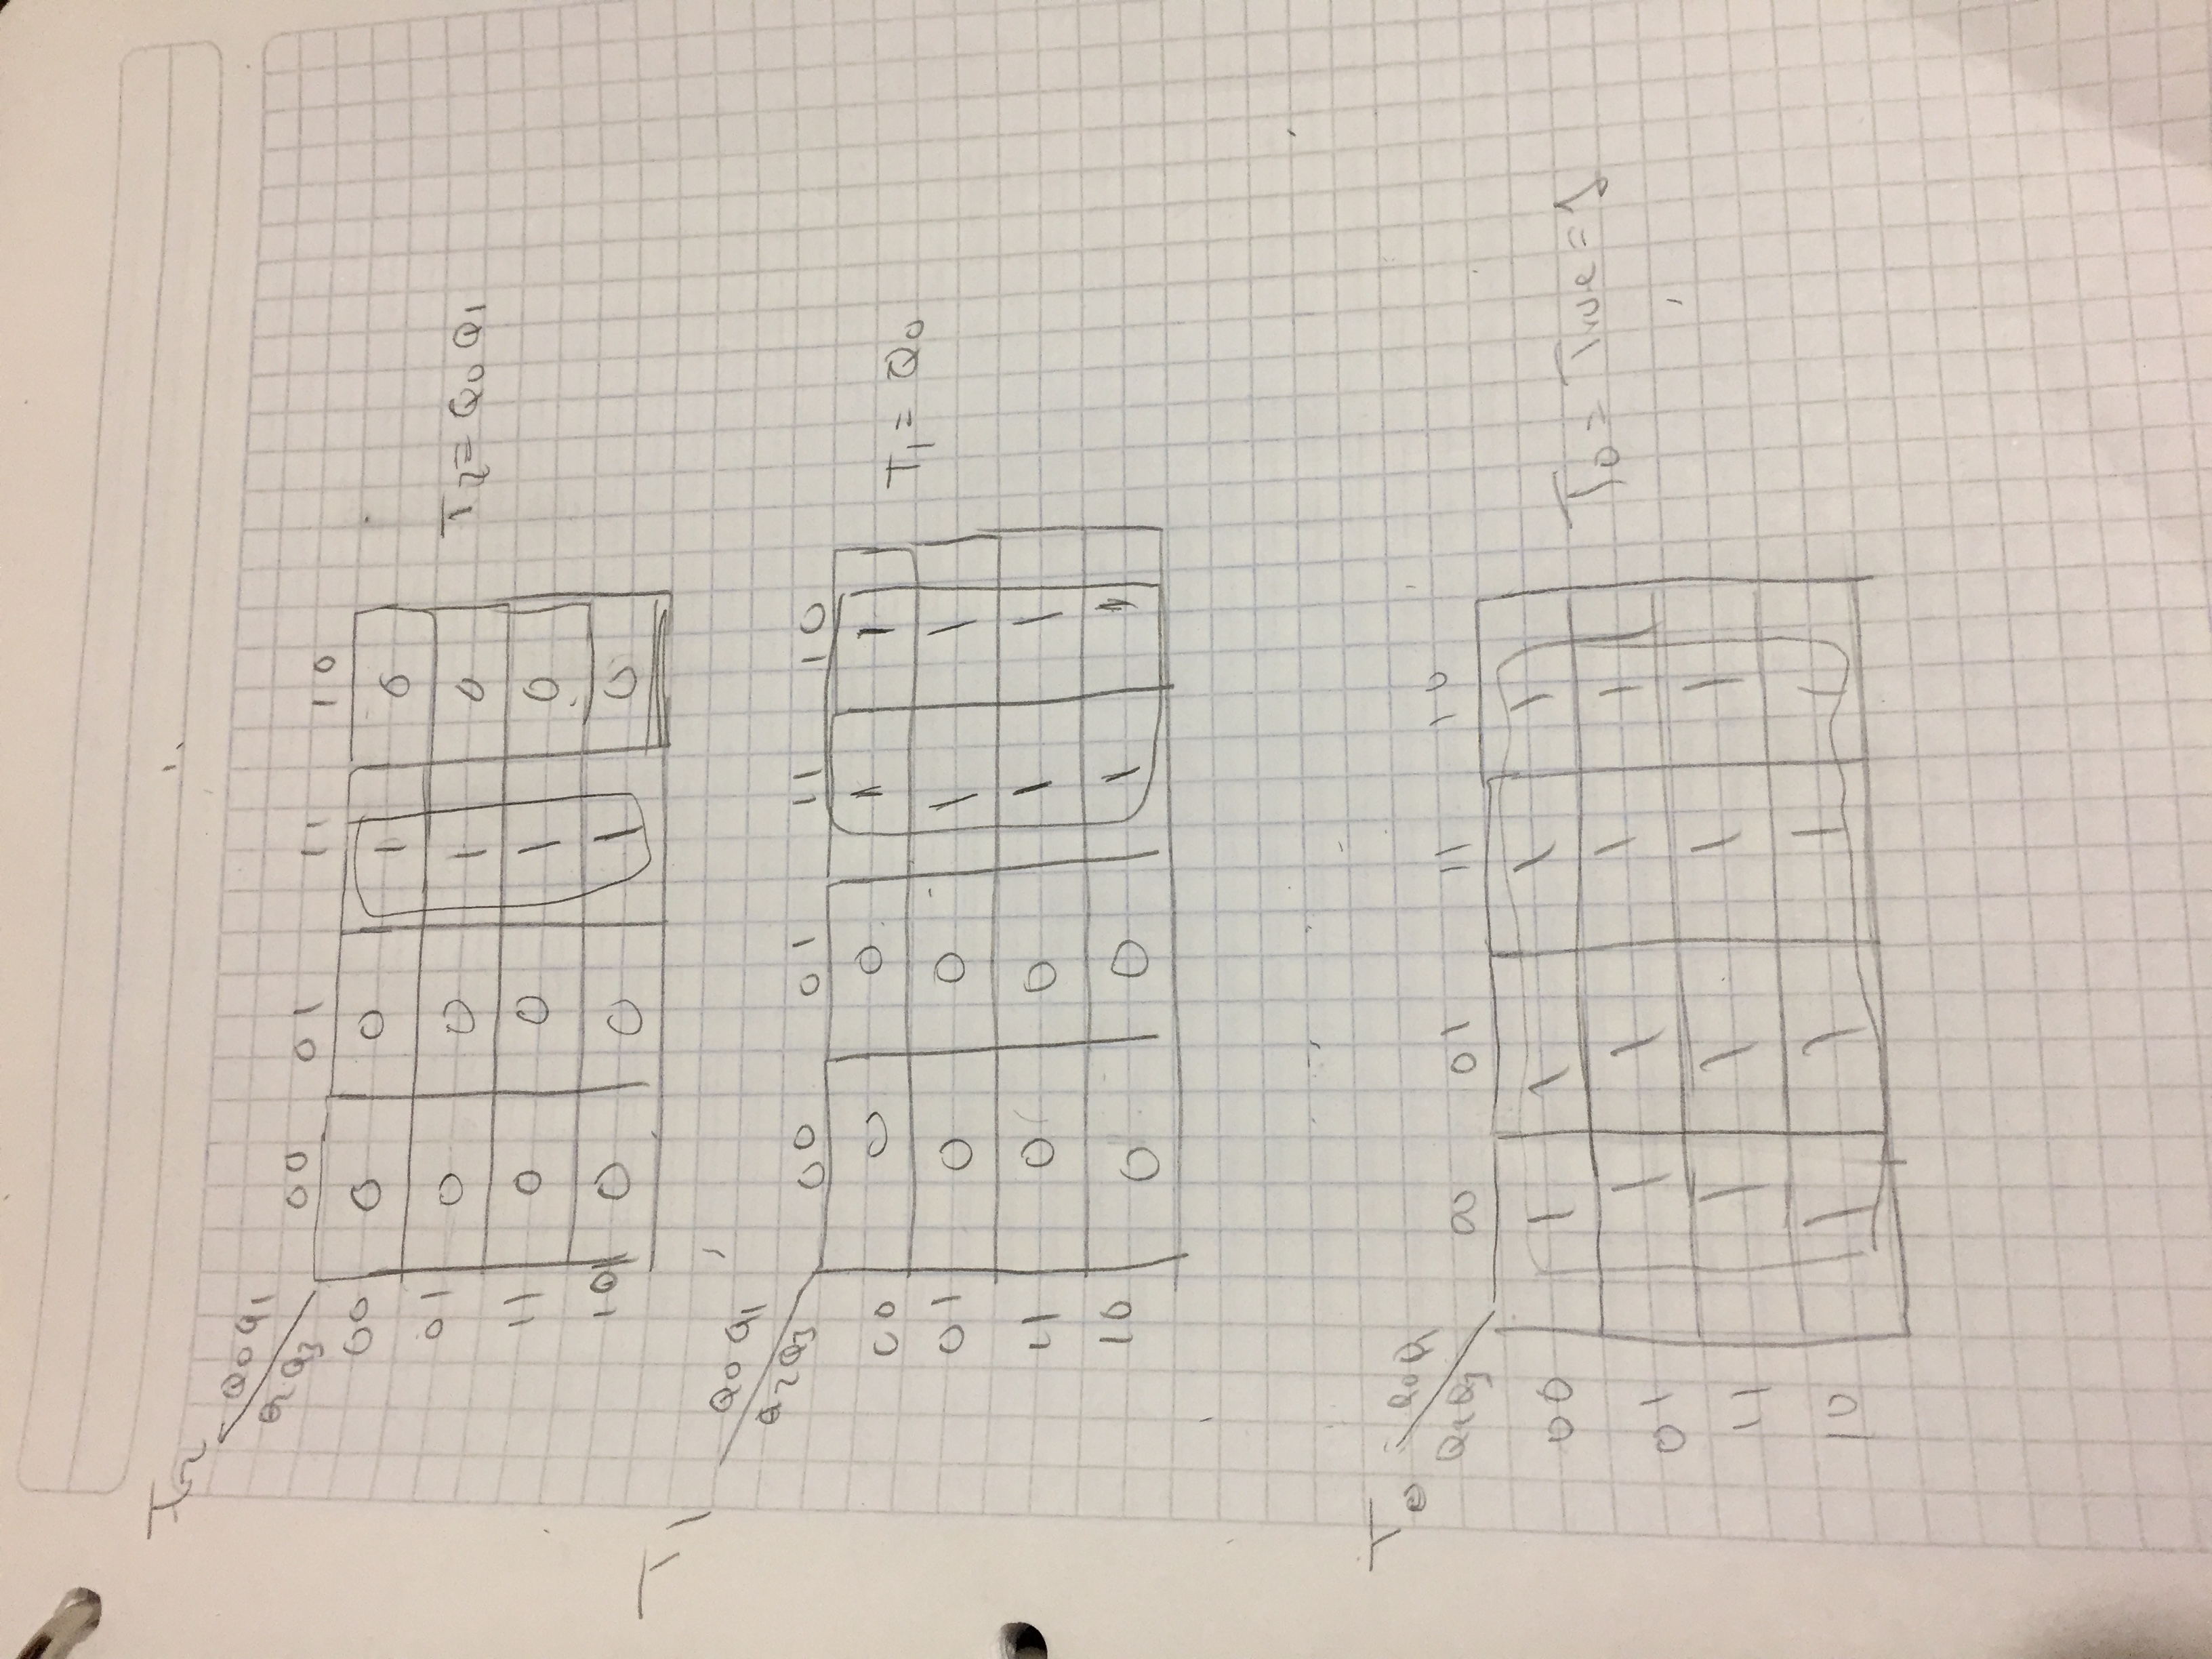 T2
Q0 Q1
Q2 Q3
00 01 11 10
00 0 0 1 0
01 0 0 1 0
11 0 0 1 0
10 0 0 1 0
T2 = Q0 Q1
T1
Q0 Q1
Q2 Q3
00 01 11 10
00 0 0 1 1
01 0 0 1 1
11 0 0 1 1
10 0 0 1 1
T1 = Q0
T0
Q0 Q1
Q2 Q3
00 01 11 10
00 1 1 1 1
01 1 1 1 1
11 1 1 1 1
10 1 1 1 1
T0 = True = 1